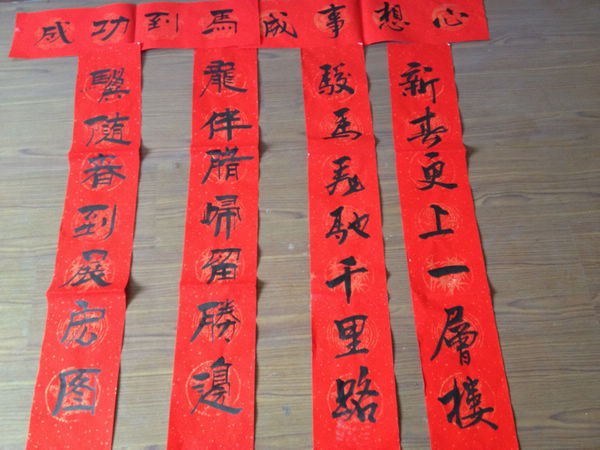 心想事成馬到功成
新春更上一層樓
駿馬奔馳千里路
龍伴腊歸留勝邊
随春到展宏图